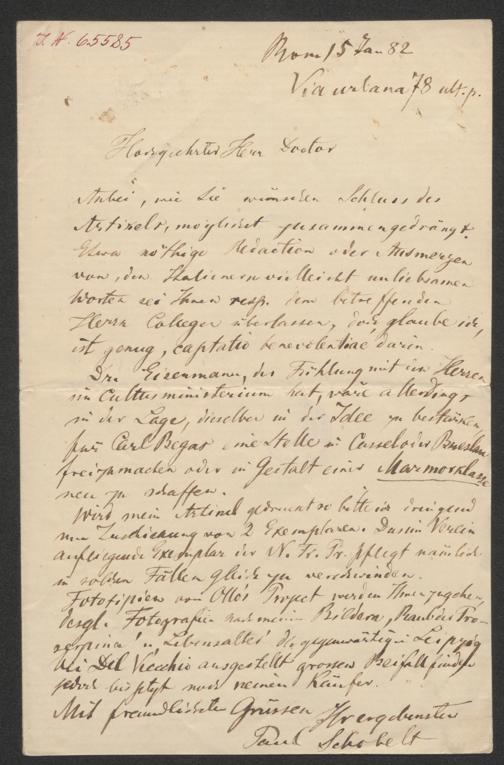 J. N. 65585
Rom 15 Jan 82
Via urbana 78 ult. p.
Hochgeehrter Herr Doctor
Anbei, wie Sie wünschen Schluss des
Artikels, möglichst zusammengedrängt.
Etwa nöthige Redaction oder Ausmerzen
von, den Italienern vielleicht unliebsamen
Worten sei Ihnen resp. dem betreffenden
Herrn Collegen überlassen, doch glaube ich,
ist genug, captatio benevolentiae darin.
Dr. Eisenmann, der Fühlung mit den Herren
im Cultusministerium hat, wäre allerdings
in der Lage, dieselben in der Idee zu bestärken,
für Carl Begas eine Stelle in Cassel oder Breslau
freizumachen oder in Gestalt einer Marmorklasse
neu zu schaffen.
Wird mein Artikel gedruckt so bitte ich dringend
um Zuschickung von 2 Exemplaren. Das im Verein
aufliegende Exemplar der N. Fr. Pr. pflegt nämlich
in solchen Fällen gleich zu verschwinden.
Fototipien von Ottos Project werden Ihnen zugehen,
desgl. Fotografien nach meinen Bildern, "Raub der Pro-
serpina" u. "Lebensalter" die gegenwärtig in Leipzig
bei Del Vecchio ausgestellt grossen Beifall finden
jedoch bis jetzt noch keinen Käufer.
Mit freundlichsten Grüssen Ihr ergebenster
Paul Schobelt